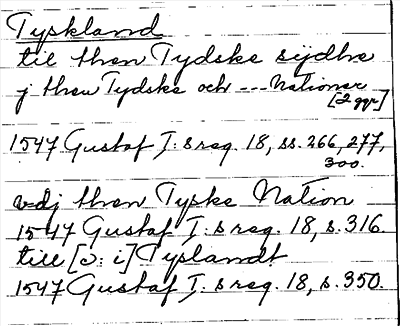 Tyskland
til then Tydske sijdhe
j then Tydske och --- Nationer
[2 ggr]
1547 Gustaf I:s reg. 18, ss. 266, 277,
300.
vdj then Tyske Nation
1547 Gustaf I:s reg. 18, s. 316.
till [ɔ: i] Tyslandt
1547 Gustaf I:s reg. 18, s. 350.